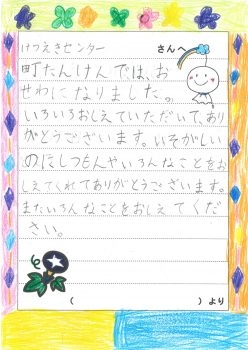 けつえきセンター さんへ
町たんけんでは、お
せわになりました。
いろいろおしえていただいて、あり
がとうございます。いそがしい
のにしつもんやいろんなことをお
しえてくれてありがとうございます。
またいろんなことをおしえてくだ
さい。
( )より